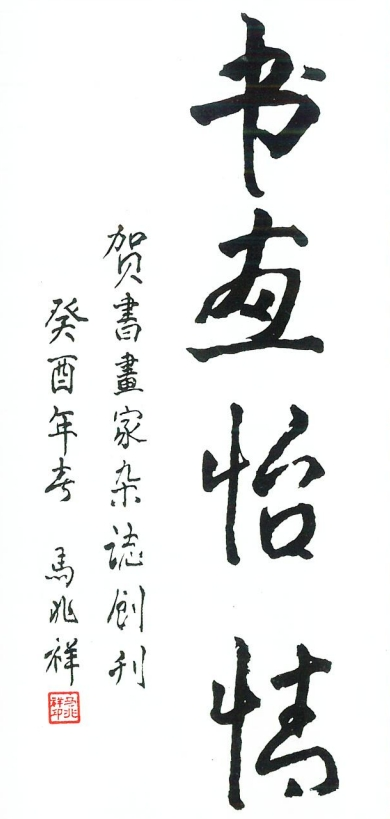 书画怡情
贺書畫家杂誌創刊
癸酉年春 馬兆祥
马兆
祥印